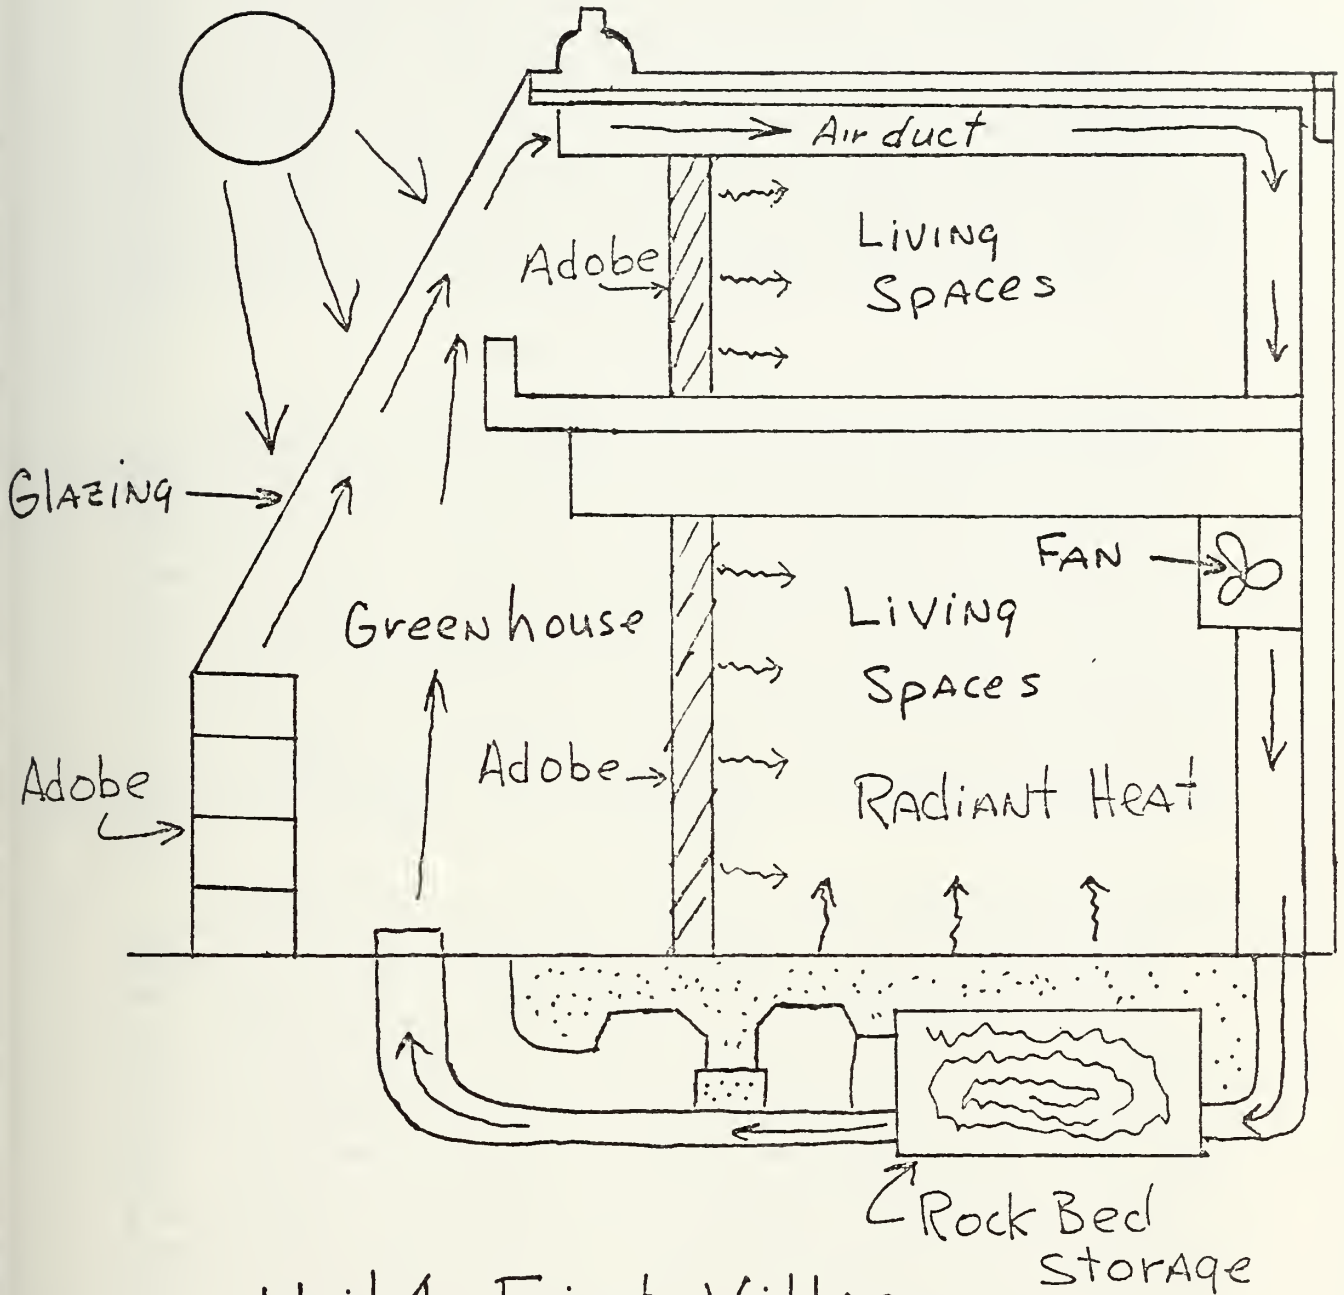 Air duct
Adobe
Living
Spaces
Glazing
Fan
Greenhouse
Living
Spaces
Adobe
Adobe
Radiant Heat
Rock Bed
Storage
First Village